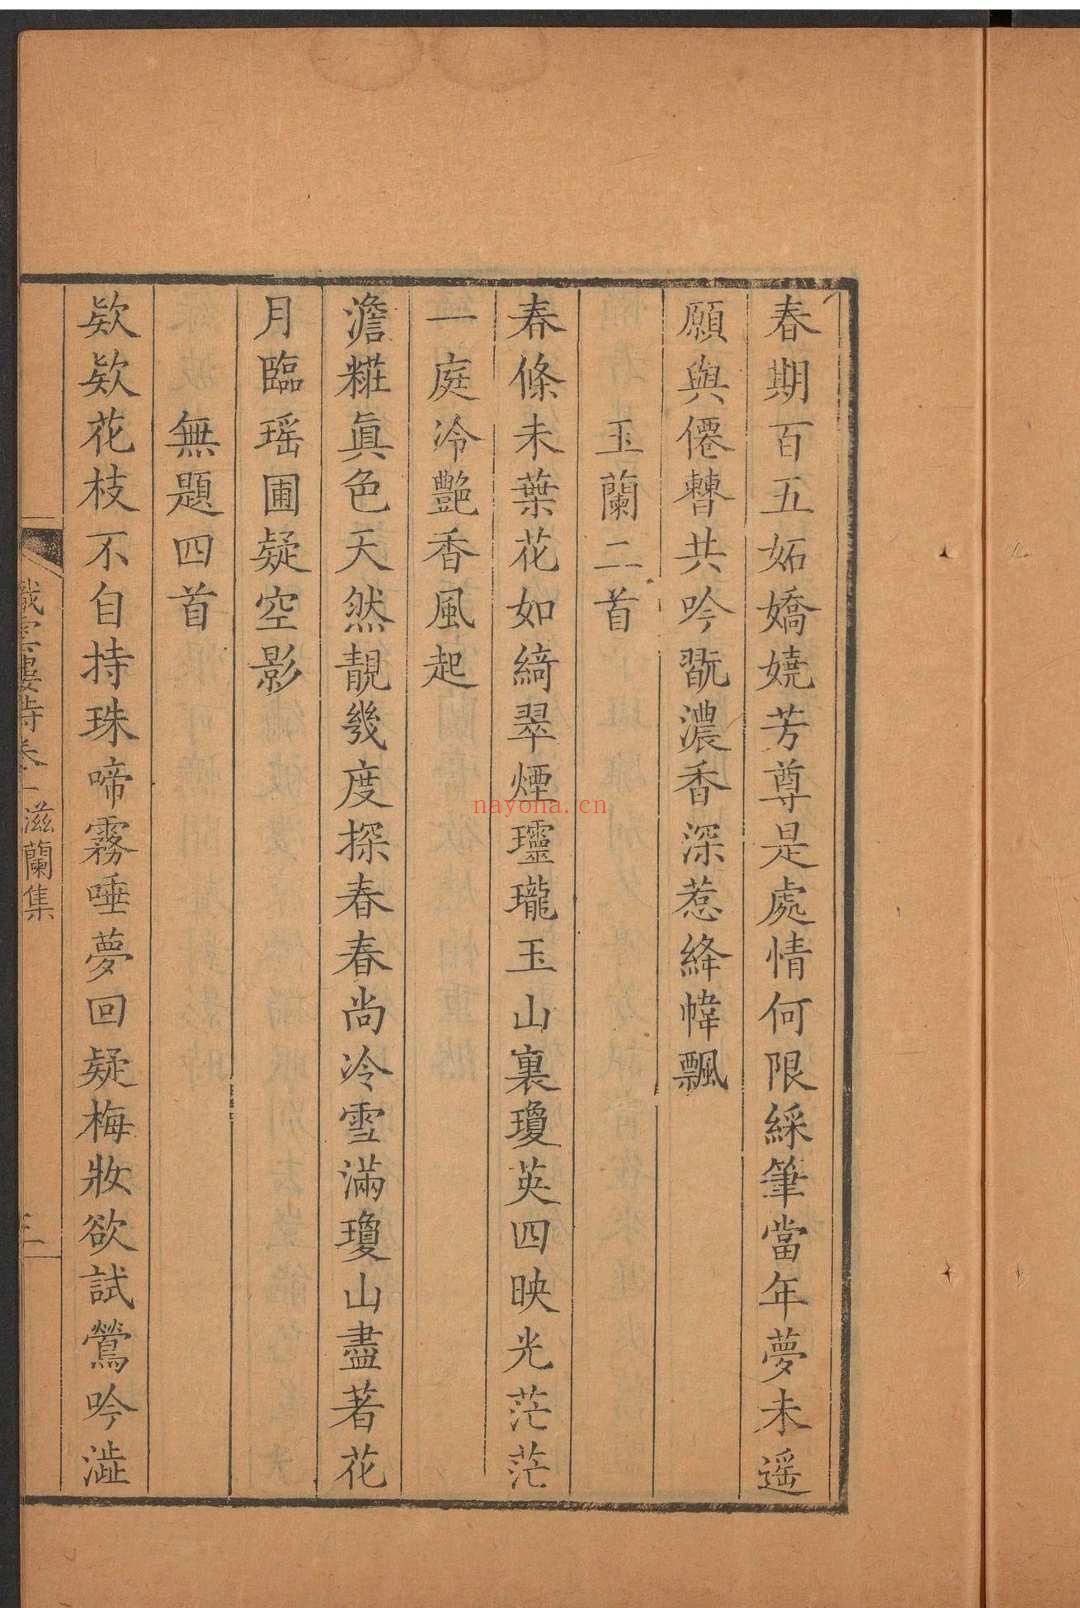 春期百五妬嬌嬈芳尊是處情何限綵筆當年夢未遥
願與僊轝共吟翫濃香深惹絳幃飄
玉蘭二首
春條未葉花如綺翠煙瓊瓏玉山裏瓊英四映光茫茫
一庭冷艷香風起
澹糚眞色天然靚幾度探春春尚冷雪滿瓊山盡著花
月臨瑶圃疑空影
無題四首
欵欵花枝不自持珠啼霧唾夢回疑梅妝欲試鶯吟澁
織雲樓詩卷 滋蘭集
三
nayona.cn